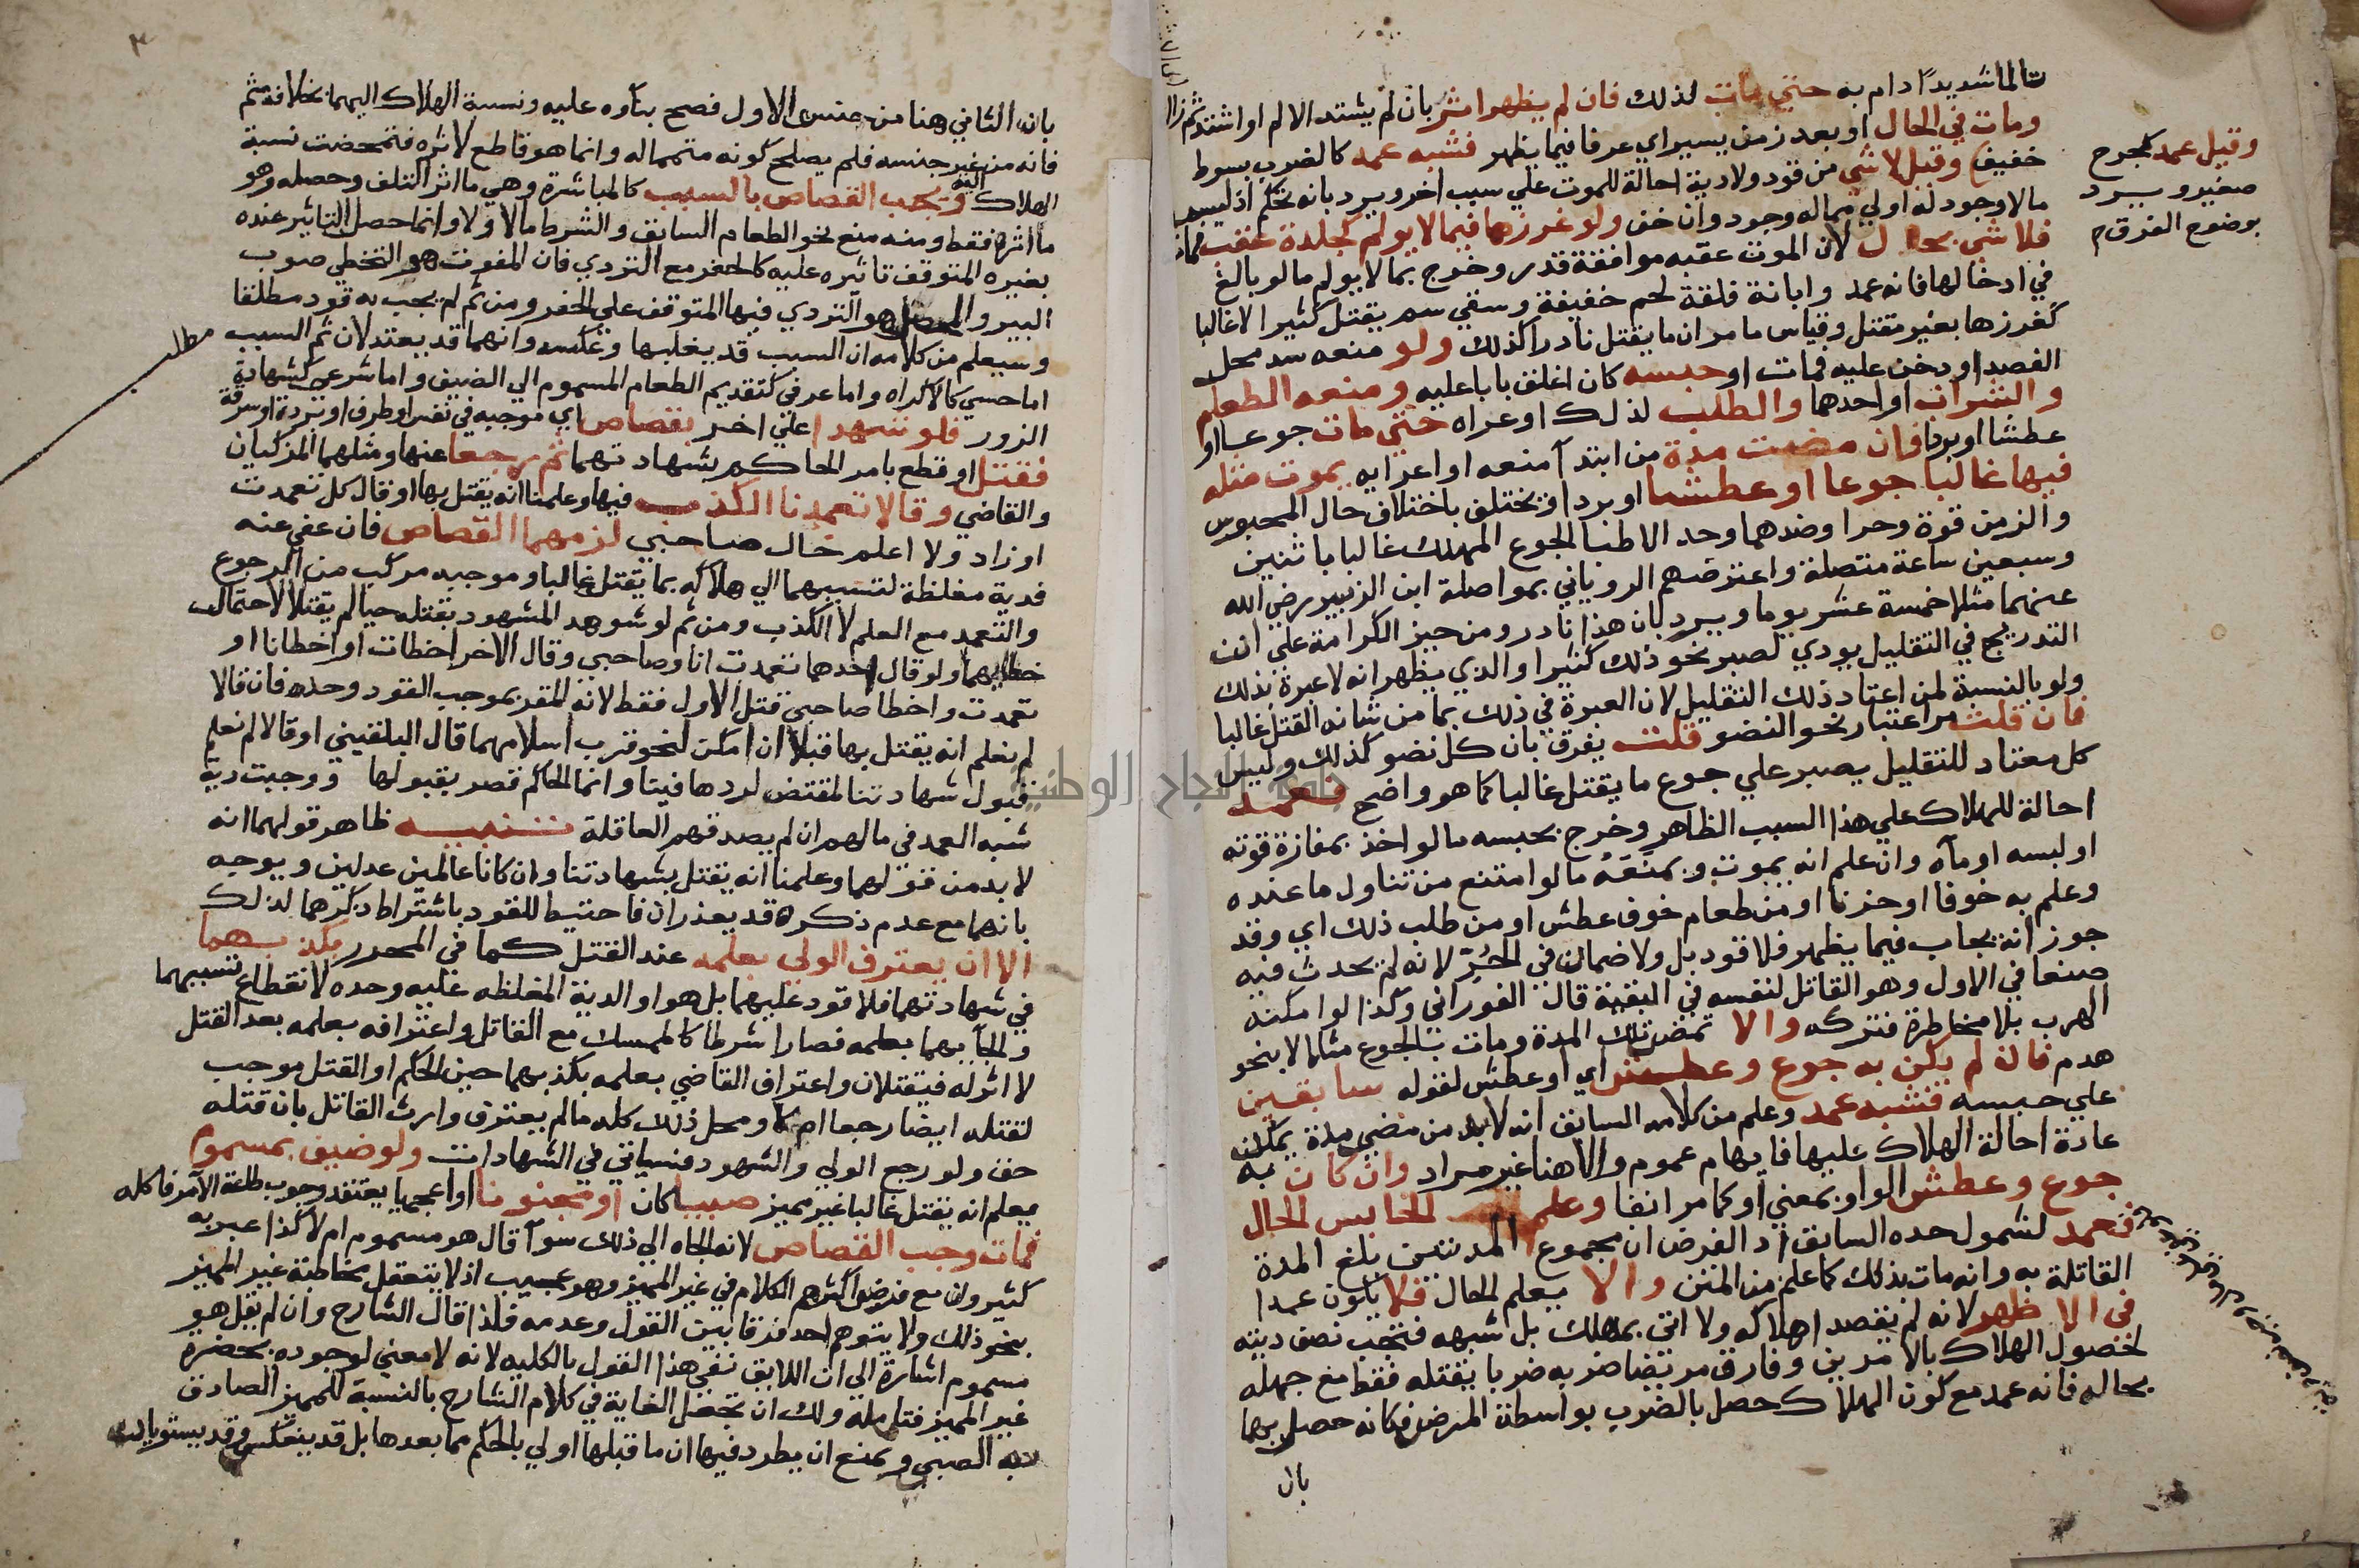 تالما شديدًا دام به حتي مات لذلك فان لم يظهر اثر بان لم يشتد الالم او اشتد ثم زال
ومات في الحال او بعد زمن يسير اي عرفا فيما يظهر فشبه عمد كالضرب بسوط
خفيف وقيل لا شي من قود ولا دية احالة للموت علي سبب اخر ويرد بانه تحكم اذ ليس
ما لا وجود له اولي مما له وجود وان خف ولو غرزها فيما لا يولم كجلدة عقب فمات
فلا شي بحال لان الموت عقبه موافقة قدر وخرج بما لا يولم ما لو بالغ
في ادخالها فانه عمد وابانة فلقة لحم خفيفة وسقي سم يقتل كثيرا لا غالبا
كغرزها بغير مقتل وقياس ما مر ان ما يقتل نادرا كذلك ولو منعه سد محل
الفصد او دخن عليه فمات او حبسه كان اغلق بابا عليه ومنعه الطعام
والشراب او احدهما والطلب لذلك او عراه حتي مات جوعا او
عطشا او بردا فان مضت مدة من ابتدآ منعه او اعرايه يموت مثله
فيها غالبا جوعا او عطشا او بردا وتختلف باختلاف حال المحبوس
والزمن قوة وحرا وضدهما وحد الاطبا الجوع المهلك غالبا باثنين
وسبعين ساعة متصلة واعترضهم الروياني بمواصلة ابن الزبير رضي الله
عنهما مثلا خمسة عشر يوما ويرد بان هذا نادر ومن حيز الكرامة علي انف
التدريج في التقليل يودي لصبر نحو ذلك كثيرا والذي يظهر انه لا عبرة بذلك
ولو بالنسبة لمن اعتاد ذلك التقليل لان العبرة في ذلك بما من شانه القتل غالبا
فان قلت مر اعتبار نحو النضو قلت يفرق بان كل نضو كذلك وليس
كل معتاد للتقليل يصبر علي جوع ما يقتل غالبا كما هو واضح فعمد
احالة للهلاك علي هذا السبب الظاهر وخرج بحبسه ما لو اخذ بمفازة قوته
او لبسه او مآه وان علم انه يموت وبمنعه ما لو امتنع من تناول ما عنده
وعلم به خوفا او حزنا او من طعام خوف عطش او من طلب ذلك اي وقد
جوز انه يجاب فيما يظهر فلا قود بل ولا ضمان في الحُرّ لانه لم يحدث فيه
صنعا في الاول وهو القاتل لنفسه في البقية قال الفوراني وكذا لو امكنه
الهرب بلا مخاطرة فتركه والا تمض تلك المدة ومات بالجوع مثلا لا بنحو
هدم فان لم يكن به جوع وعطش اي او عطش لقوله سابقين
علي حبسه فشبه عمد وعلم من كلامه السابق انه لا بد من مضي مدة يمكن
عادة احالة الهلاك عليها فايهام عموم والا هنا غير مراد وان كان به
جوع وعطش الواو بمعني او كما مر انفا وعلم الحابس الحال
فعمد لشمول حده السابق اذ الفرض ان مجموع المدتين بلغ المدة
القاتلة به وانه مات بذلك كما علم من المتن والا يعلم الحال فلا يكون عمدا
في الاظهر لانه لم يقصد اهلاكه ولا اتي بمهلك بل شبهه فتجب نصف ديته
لحصول الهلاك بالامرين وفارق مريضا ضربه ضربا يقتله فقط مع جهله
بحاله فانه عمد مع كون الهلاك حصل بالضرب بواسطة المرض فكانه حصل بهما
بان
وقيل عمد كجرح
صغير ويرد
بوضوح الفرق م
بان الثاني هنا من جنس الاول فصح بنآوه عليه ونسبة الهلاك اليهما بخلافه ثم
فانه من غير جنسه فلم يصلح كونه متمما له وانما هو قاطع لاثره فتمحضت نسبة
الهلاك اليه ويجب القصاص بالسبب كالمباشرة وهي ما اثر التلف وحصله وهو
ما اثره فقط ومنه منع نحو الطعام السابق والشرط ما لا ولا وانما حصل التاثير عنده
بغيره المتوقف تاثيره عليه كالحفر مع التردي فان المفوت هو التخطي صوب
البير والمحصل هو التردي فيها المتوقف علي الحفر ومن ثم لم يجب به قود مطلقا
وسيعلم من كلامه ان السبب قد يغلبها وعكسه وانهما قد يعتدلان ثم السبب
مطلب
اما حسي كالاكراه واما عرفي كتقديم الطعام المسموم الي الضيف واما شرعي كشهادة
الزور فلو شهدا علي اخر بقصاص اي موجبه في نفس او طرف او بردة او سرقة
فقتل او قطع بامر الحاكم بشهادتهما ثم رجعا عنها ومثلهما المزكيان
والقاضي وقالا تعمدنا الكذب فيها وعلمنا انه يقتل بها او قال كل تعمدت
او زاد ولا اعلم حال صاحبي لزمهما القصاص فان عفي عنه
فدية مغلظة لتسببهما الي هلاكه بما يقتل غالبا وموجبه مركب من الرجوع
والتعمد مع العلم لا الكذب ومن ثم لو شوهد المشهود بقتله حيا لم يقتلا لاحتمال
خطايهما ولو قال احدهما تعمدت انا وصاحبي وقال الاخر اخطات او اخطانا او
تعمدت واخطا صاحبي قتل الاول فقط لانه المقر بموجب القود وحده فان قالا
لم نعلم انه يقتل بها قبلا ان امكن لنحو قرب اسلامهما قال البلقيني او قالا لم نعلم
قبول شهادتنا لمقتض لردها فينا وانما الحاكم قصر بقبولها ووجبت دية
شبه العمد في مالهم ان لم يصدقهم العاقلة تنبيه ظاهر قولهما انه
لا بد من قولهما وعلمنا انه يقتل بشهادتنا وان كانا عالمين عدلين ويوجه
بانهما مع عدم ذكره قد يعذران فاحتيط للقود باشتراط ذكرهما لذلك
الا ان يعترف الولي بعلمه عند القتل كما في المحرر بكذبهما
في شهادتهما فلا قود عليهما بل هو او الدية المغلظه عليه وحده لانقطاع تسببهما
والجآيهما بعلمه فصارا شرطا كالممسك مع القاتل واعترافه بعلمه بعد القتل
لا اثر له فيقتلان واعتراف القاضي بعلمه بكذبهما حين الحكم او القتل موجب
لقتله ايضا رجعا ام لا ومحل ذلك كله ما لم يعترف وارث القاتل بان قتله
حق ولو رجع الولي والشهود فسياتي في الشهادات ولو ضيف بمسموم
يعلم انه يقتل غالبا غير مميز صبيا كان او مجنونا او اعجميا يعتقد وجوب طاعة الآمر فاكله
فمات وجب القصاص لانه الجاه الي ذلك سوآ قال هو مسموم ام لا كذا عبر به
كثيرون مع فرض اكثرهم الكلام في غير المميز وهو عجيب اذ لا يتعقل مخاطبة غير المميز
بنحو ذلك ولا يتوهم احد فرقا بين القول وعدمه فلذا قال الشارح وان لم يقل هو
مسموم اشارة الي ان اللايق نفي هذا القول بالكليه لانه لا معني لوجوده بحضرة
غير المميز فتامله ولك ان تجعل الغاية في كلام الشارح بالنسبة للمميز الصادق
به الصبي ويمنع ان يطرد فيها ان ما قبلها اولي بالحكم مما بعدها بل قد ينعكس وقد يستويان
جامعة النجاح الوطنية